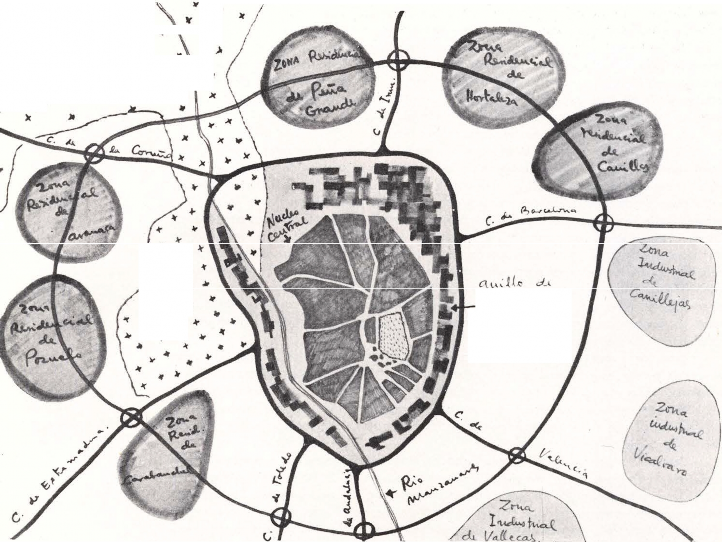 Zona Residencial
de Peña
Grande
Zona
Residencial
de
Hortaleza
Zona
residencial
de
Canillas
C. de Irun.
C. de la Coruña
Zona
Residencial
de
aravaca
Nucleo
Central
C. de Barcelona
Zona
Industrial
de
Canillejas
anillo de
Zona
Residencial
de
Pozuelo
Zona
Resid.
de
Carabanchel
Zona
industrial
de
Vicalvaro
C. de Extremadura.
C. de Toledo
de Andalucia
Rio
Manzanares
C. de Valencia
Zona
Industrial
de Vallecas.